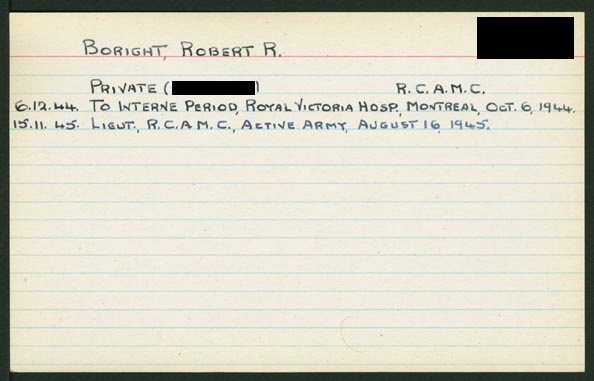 BORIGHT, ROBERT R.
PRIVATE ( ) R.C.A.M.C.
6.12.44. TO INTERNE PERIOD, ROYAL VICTORIA HOSP., MONTREAL, OCT. 6, 1944.
15.11.45. LIEUT., R.C.A.M.C., ACTIVE ARMY, AUGUST 16, 1945.